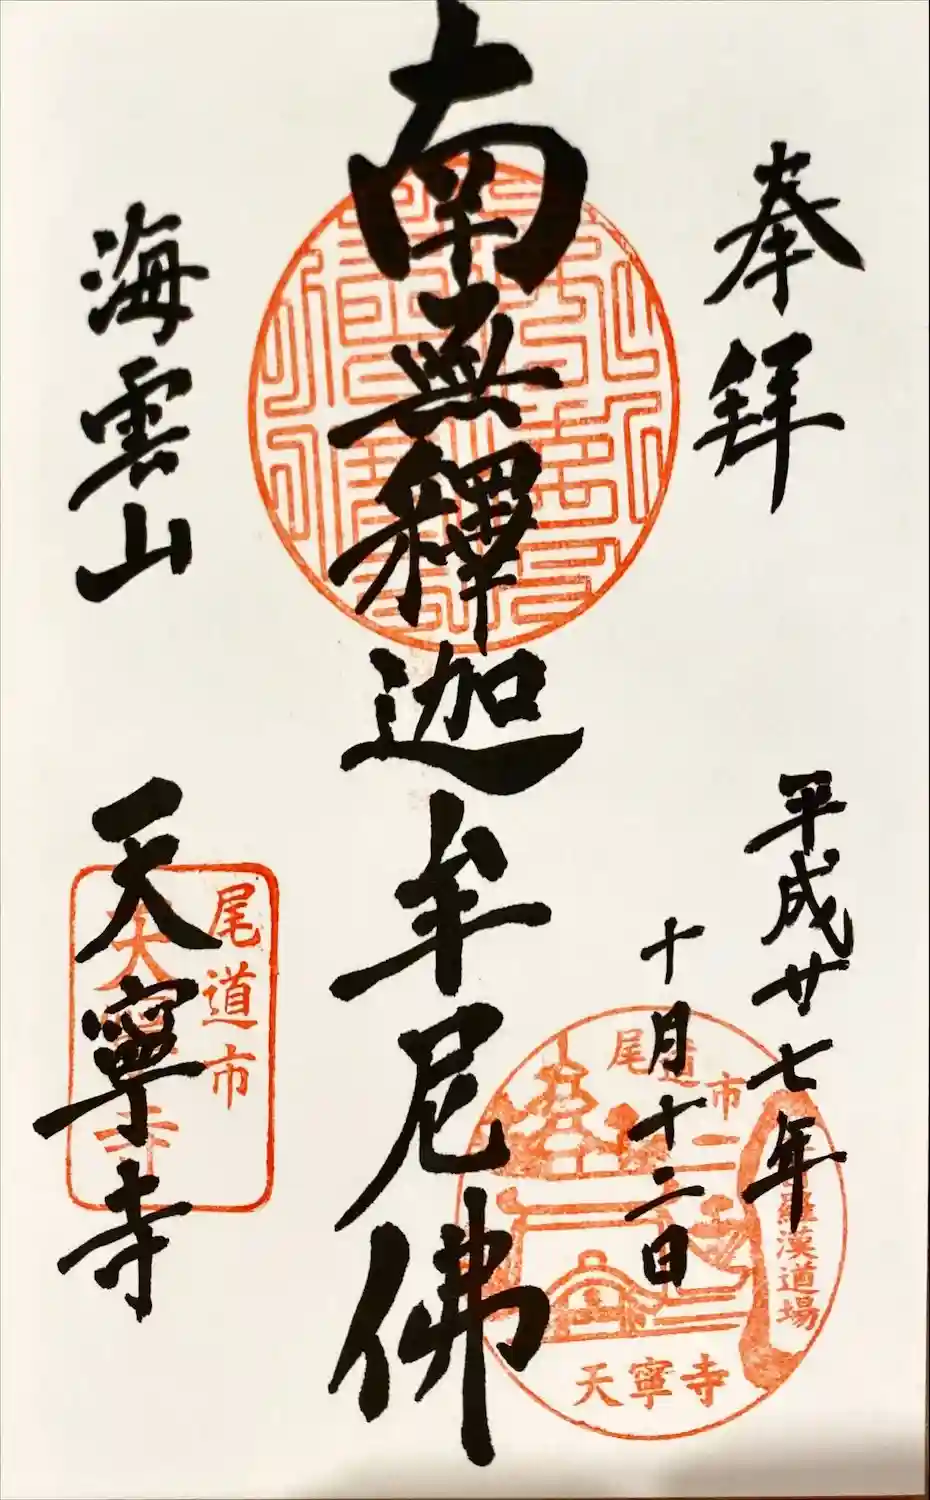 奉拜
平成廿七年
十月十二日
南無釋迦牟尼佛
海雲山
天寧寺
尾道市
天寧寺
尾道市
羅漢道場
天寧寺